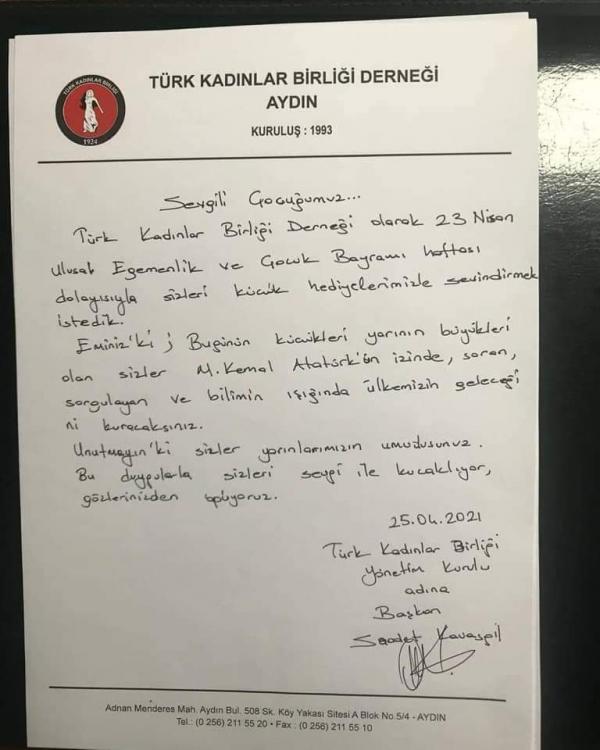 TÜRK KADINLAR BİRLİĞİ
1924
TÜRK KADINLAR BİRLİĞİ DERNEĞİ
AYDIN
KURULUŞ : 1993
Sevgili Çocuğumuz...
Türk Kadınlar Birliği Derneği olarak 23 Nisan
Ulusal Egemenlik ve Çocuk Bayramı haftası
dolayısıyla sizleri küçük hediyelerimizle sevindirmek
istedik.
Eminiz'ki ; Bugünün küçükleri yarının büyükleri
olan sizler M. Kemal Atatürk'ün izinde, soran,
sorgulayan ve bilimin ışığında ülkemizin geleceği
ni kuracaksınız.
Unutmayın'ki sizler yarınlarımızın umudusunuz.
Bu duygularla sizleri sevgi ile kucaklıyor,
gözlerinizden öpüyoruz.
25.04.2021
Türk Kadınlar Birliği
Yönetim Kurulu
adına
Başkan
Saadet
Adnan Menderes Mah. Aydın Bul. 508 Sk. Köy Yakası Sitesi A Blok No.5/4 - AYDIN
Tel.: (0 256) 211 55 20 • Fax : (0 256) 211 55 10